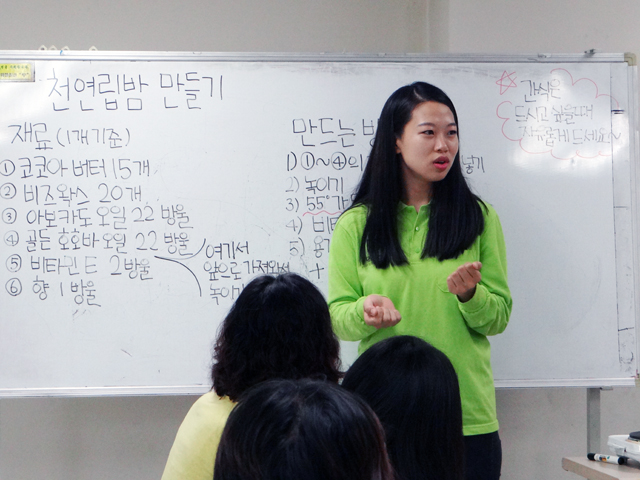 천연립밤 만들기
재료 (1개기준)
① 코코아 버터 15개
② 비즈왁스 20개
③ 아보카도 오일 22 방울
④ 골든 호호바 오일 22 방울
⑤ 비타민 E 2방울
⑥ 향 1방울
여기서
앞으로
녹이기
만드는
1) ①~④의 넣기
2) 녹이기
3) 55°
4)
5)
+
간식은
드시고